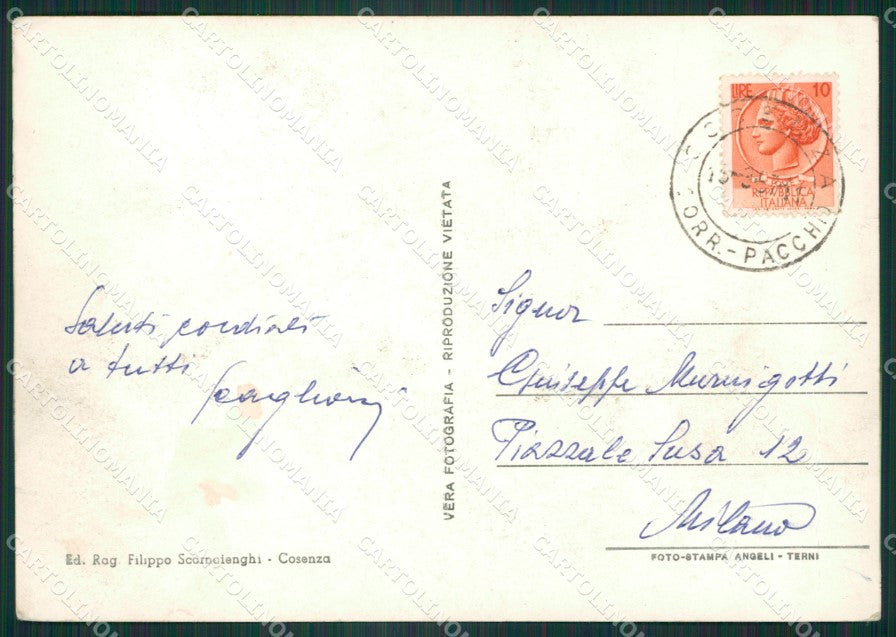 LIRE 10
REPVBBLICA
ITALIANA
COSENZA
CORR.-PACCHI
Saluti cordiali
a tutti
Signor
Giuseppe Murnigotti
Piazzale Susa 12
Milano
VERA FOTOGRAFIA - RIPRODUZIONE VIETATA
Ed. Rag. Filippo Scarnaienghi - Cosenza
FOTO-STAMPA ANGELI - TERNI
CARTOLINOMANIA